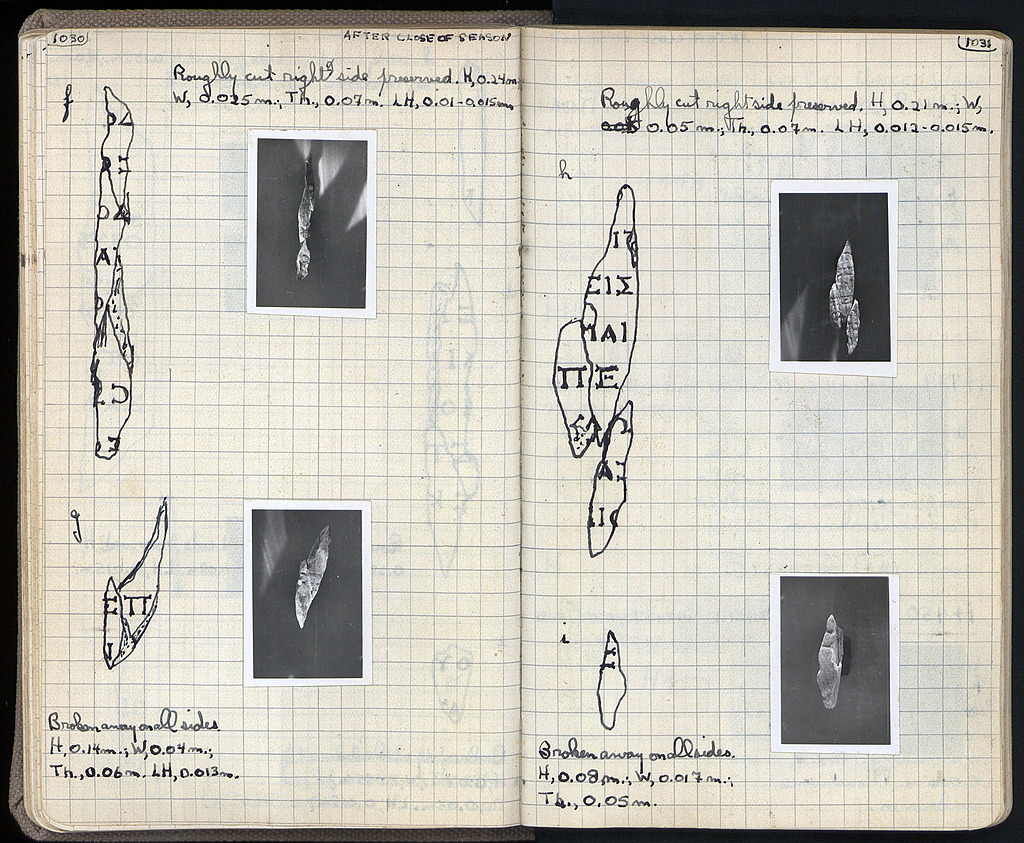 1030
AFTER CLOSE OF SEASON
Roughly cut right side preserved. H, 0.24m
W, 0.025m.; Th., 0.07m. LH, 0.01-0.015m
f
Α
g
Ε Π
Broken away on all sides.
H, 0.14m.; W, 0.04m.;
Th., 0.06m. LH, 0.013m.
1031
Roughly cut right side preserved. H, 0.21m.; W,
0.05m.; Th., 0.07m. LH, 0.012-0.015m.
h
ΣΙΣ
ΑΙ
Π Ε
i
Broken away on all sides.
H, 0.08m.; W, 0.017m.;
Th., 0.05m.